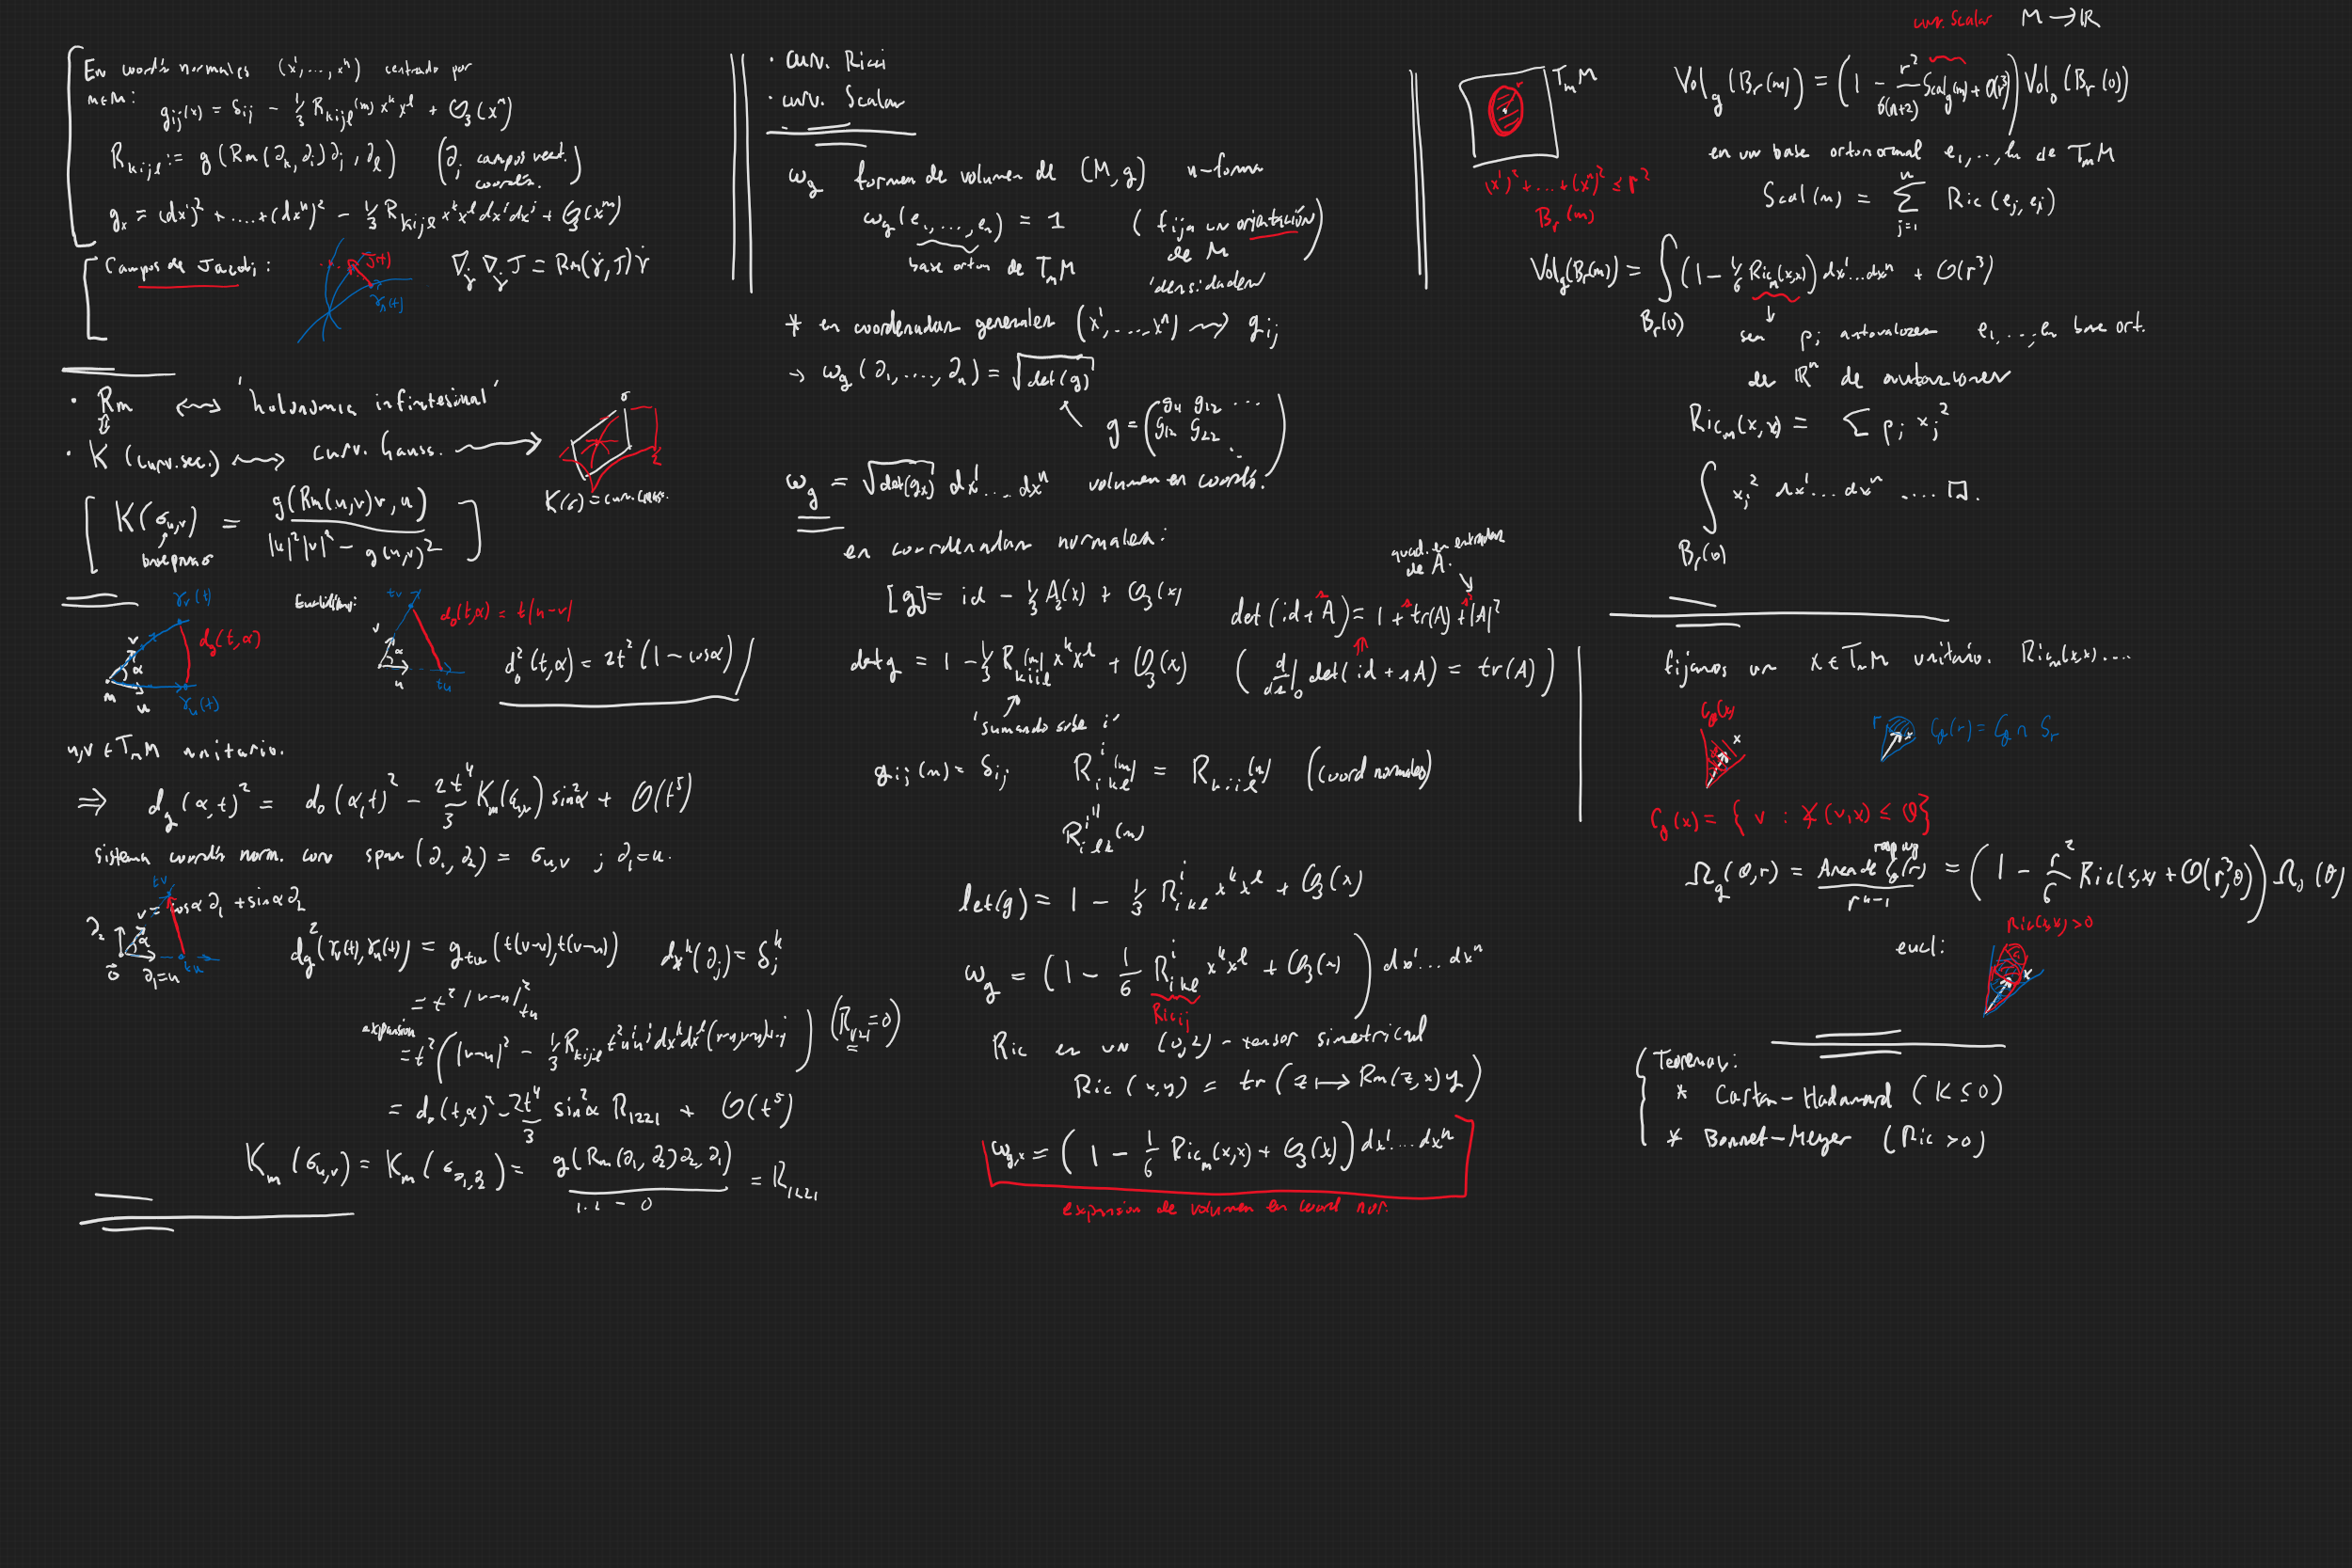 En coord's normales (x¹,...,xⁿ) centrado por
m∈M: g_ij(x) = δ_ij − 1/3 R_kijl(m) x^k x^l + O_3(x^m)
R_kijl := g(Rm(∂_k,∂_i)∂_j, ∂_l) (∂_j campos vect. coords.)
g_x = (dx¹)² + .... + (dxⁿ)² − 1/3 R_kijl x^k x^l dx^i dx^j + O_3(x^m)
Campos de Jacobi: J(t) γ_s(t) ∇_γ̇ ∇_γ̇ J = Rm(γ̇,J)γ̇
· Rm ⟷ 'holonomia infinitesimal'
· K (curv. sec.) ⟷ curv. Gauss. ⟶ σ Σ
K(σ) = curv. Gauss.
[ K(σ_u,v) = g(Rm(u,v)v,u) / |u|²|v|² − g(u,v)² ]
γ_v(t) v α m u γ_u(t) d_g(t,α)
tv v α u tu d_0(t,α) = t|u−v|
d_0²(t,α) = 2t²(1−cosα)
u,v ∈ T_mM unitario.
⇒ d_g(α,t)² = d_0(α,t)² − 2t⁴/3 K_m(σ_u,v) sin²α + O(t⁵)
sistema coord's norm. con span(∂_1,∂_2) = σ_u,v ; ∂_1=u.
tv v = cosα ∂_1 + sinα ∂_2
∂_2 α 0 ∂_1=u tu
d_g²(γ_v(t),γ_u(t)) = g_tu(t(v−u),t(v−u)) dx^k(∂_j) = δ_j^k
= t² |v−u|²_tu
expansion = t²(|v−u|² − 1/3 R_kijl t² u^i u^j dx^k dx^l (v−u,v−u)+...) (R_1121=0)
= d_0(t,α)² − 2t⁴/3 sin²α R_1221 + O(t⁵)
K_m(σ_u,v) = K_m(σ_∂1,∂2) = g(Rm(∂_1,∂_2)∂_2,∂_1) / 1·1 − 0 = R_1221
· curv. Ricci
· curv. Scalar
ω_g forma de volumen de (M,g) n-forma
ω_g(e_1,...,e_n) = 1 (fija un orientación de M)
base orton de T_mM
'densidades'
* en coordenadas generales (x¹,....,xⁿ) ⇝ g_ij
→ ω_g(∂_1,....,∂_n) = √det(g)
g = (g_11 g_12 ... g_12 g_22 ...)
ω_g = √det(g_x) dx¹...dxⁿ volumen en coords.
en coordenadas normales:
[g] = id − 1/3 A_2(x) + O_3(x)
quad. en entradas de A.
det(id + sA) = 1 + s tr(A) + s²|A|²
det g = 1 − 1/3 R_kiil(m) x^k x^l + O_3(x) (d/ds|_0 det(id + sA) = tr(A))
'sumando sobre i'
g_ij(m) = δ_ij R^i_ikl(m) = R_kiil(m) (coord normales)
R^i_ilk(m)
det(g) = 1 − 1/3 R^i_ikl x^k x^l + O_3(x)
ω_g = (1 − 1/6 R^i_ikl x^k x^l + O_3(x)) dx¹...dxⁿ
Ric_ij
Ric es un (0,2)-tensor simetrical
Ric(x,y) = tr(z ⟼ Rm(z,x)y)
ω_g,x = (1 − 1/6 Ric_m(x,x) + O_3(x)) dx¹...dxⁿ
expansion de volumen en coord nor.
curv. Scalar M→ℝ
T_mM r
Vol_g(B_r(m)) = (1 − r²/6(n+2) Scal_g(m) + O(r³)) Vol_0(B_r(0))
(x¹)² + ... + (xⁿ)² ≤ r²
B_r(m)
en un base ortonormal e_1,..,e_n de T_mM
Scal(m) = Σ_{j=1}^n Ric(e_j,e_j)
Vol_g(B_r(m)) = ∫_{B_r(0)} (1 − 1/6 Ric_m(x,x)) dx¹...dxⁿ + O(r³)
sea ρ_j autovalores e_1,...,e_n base ort.
de ℝⁿ de autovectores
Ric_m(x,x) = Σ ρ_j x_j²
∫_{B_r(0)} x_j² dx¹...dxⁿ .... □.
fijamos un x∈T_mM unitario. Ric_m(x,x)....
C_θ(x) x
r x C_θ(r) = C_θ ∩ S_r
C_θ(x) = { v : ∡(v,x) ≤ θ }
Ω_g(θ,r) = Area de C_θ(r) resp a g / r^{n−1} = (1 − r²/6 Ric(x,x) + O(r³,θ)) Ω_0(θ)
Ric(x,x) > 0
eucl: x
Teoremas:
* Cartan-Hadamard (K ≤ 0)
* Bonnet-Meyer (Ric > 0)